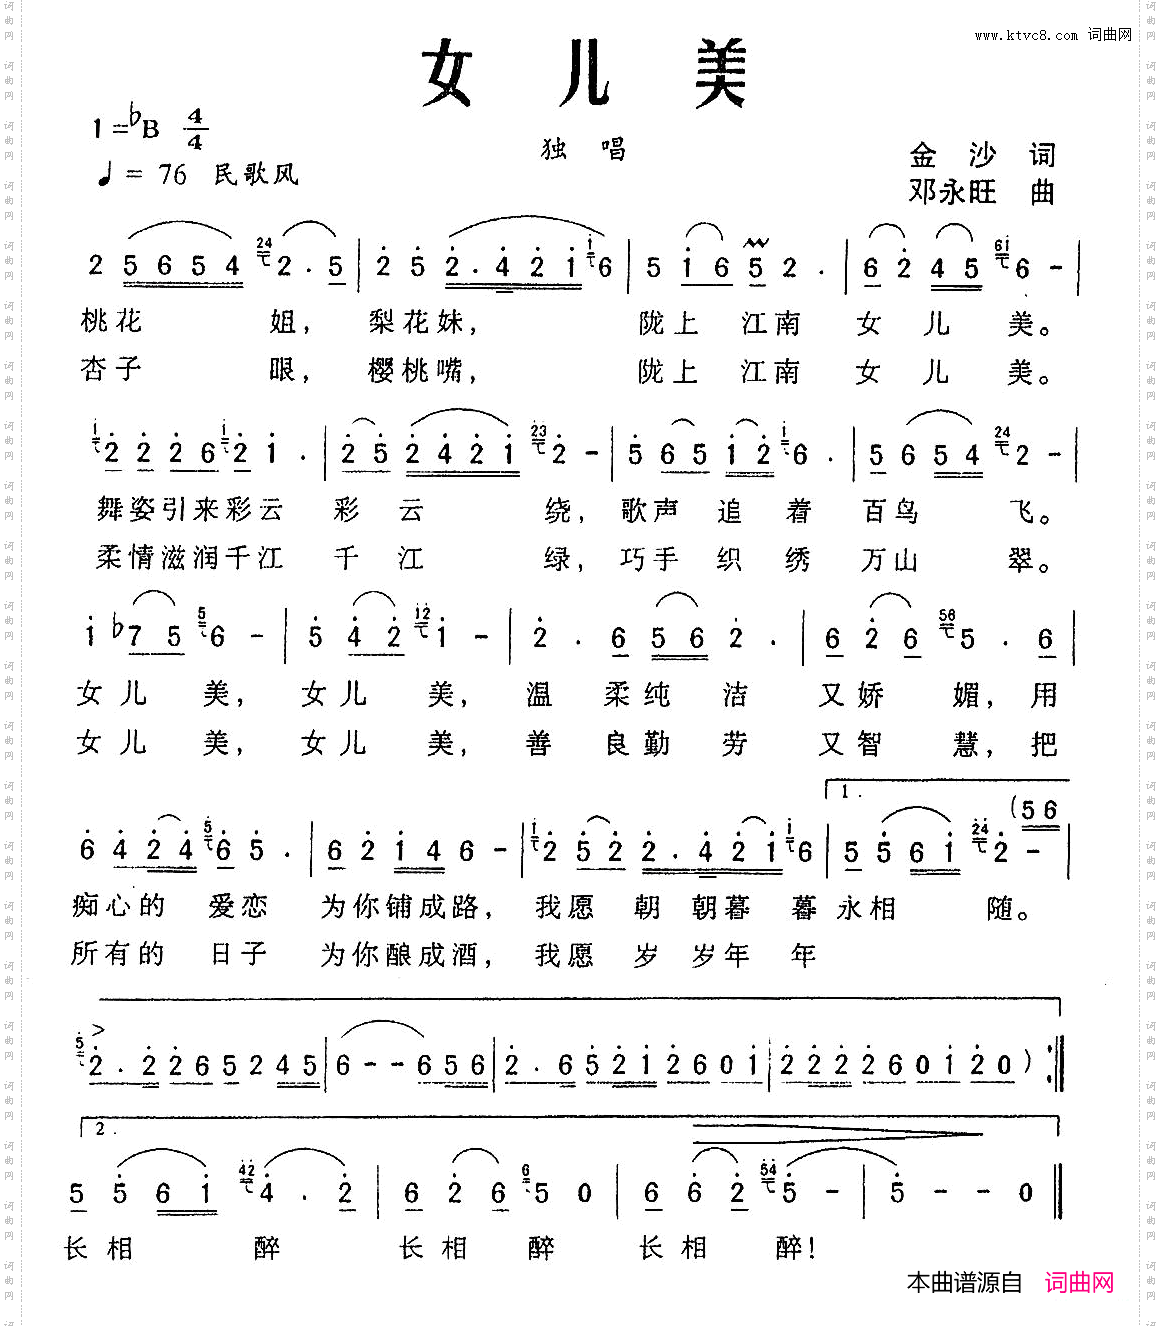 www.ktvc8.com 词曲网
女儿美
独唱
1=♭B 4/4
♩=76 民歌风
金沙 词
邓永旺 曲
2 5 6 5 4 24 2 . 5 | 2 5 2 . 4 2 1 1 6 | 5 1 6 5 2 . | 6 2 4 5 61 6 - |
桃花 姐， 梨花妹， 陇上 江南 女儿 美。
杏子 眼， 樱桃嘴， 陇上 江南 女儿 美。
1 2 2 2 6 1 2 1 . | 2 5 2 4 2 1 23 2 - | 5 6 5 1 2 1 6 . | 5 6 5 4 24 2 - |
舞姿引来彩云 彩云 绕，歌声 追着 百鸟 飞。
柔情滋润千江 千江 绿，巧手 织绣 万山 翠。
1 ♭7 5 5 6 - | 5 4 2 12 1 - | 2 . 6 5 6 2 . | 6 2 6 56 5 . 6 |
女儿 美， 女儿 美， 温 柔纯 洁 又娇 媚，用
女儿 美， 女儿 美， 善 良勤 劳 又智 慧，把
1.
(5 6
6 4 2 4 5 6 5 . | 6 2 1 4 6 - | 1 2 5 2 2 . 4 2 1 1 6 | 5 5 6 1 24 2 - |
痴心的 爱恋 为你铺成路，我愿 朝 朝暮 暮 永相 随。
所有的 日子 为你酿成酒，我愿 岁 岁年 年
5 2 . 2 2 6 5 2 4 5 | 6 - - 6 5 6 | 2 . 6 5 2 1 2 6 0 1 | 2 2 2 2 2 6 0 1 2 0 ) :|
2.
5 5 6 1 42 4 . 2 | 6 2 6 6 5 0 | 6 6 2 54 5 - | 5 - - 0 ‖
长相 醉 长相 醉 长相 醉！
本曲谱源自 词曲网